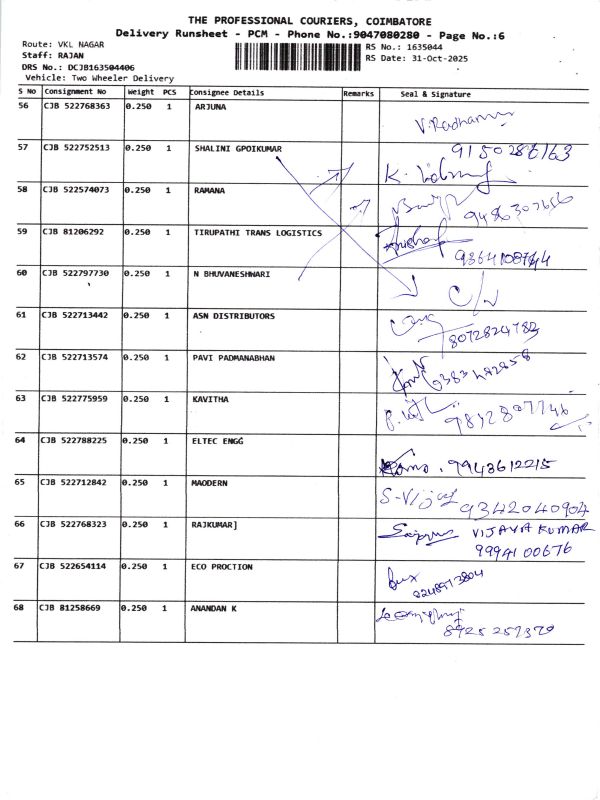 THE PROFESSIONAL COURIERS, COIMBATORE
Delivery Runsheet - PCM - Phone No.:9047080280 - Page No.:6
Route: VKL NAGAR RS No.: 1635044
Staff: RAJAN RS Date: 31-Oct-2025
DRS No.: DCJB163504406
Vehicle: Two Wheeler Delivery
S No Consignment No Weight PCS Consignee Details Remarks Seal & Signature
56 CJB 522768363 0.250 1 ARJUNA
V.Radhamani
57 CJB 522752513 0.250 1 SHALINI GPOIKUMAR
58 CJB 522574073 0.250 1 RAMANA
59 CJB 81206292 0.250 1 TIRUPATHI TRANS LOGISTICS
60 CJB 522797730 0.250 1 N BHUVANESHWARI
61 CJB 522713442 0.250 1 ASN DISTRIBUTORS
8072824783
62 CJB 522713574 0.250 1 PAVI PADMANABHAN
63 CJB 522775959 0.250 1 KAVITHA
64 CJB 522788225 0.250 1 ELTEC ENGG
9943612215
65 CJB 522712842 0.250 1 MAODERN
S-Vijay 9342040904
66 CJB 522768323 0.250 1 RAJKUMAR]
VIJAYA KUMAR
9994100676
67 CJB 522654114 0.250 1 ECO PROCTION
68 CJB 81258669 0.250 1 ANANDAN K